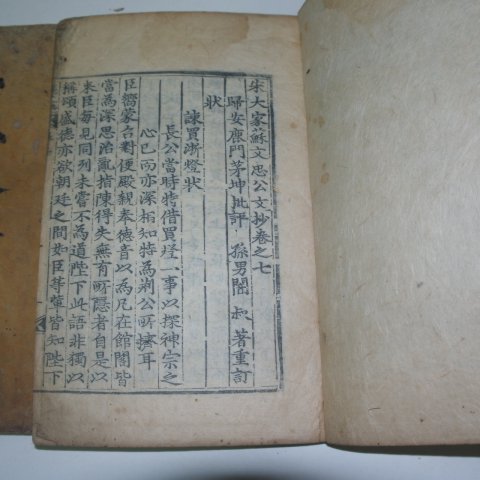 宋大家蘇文忠公文抄卷之七
歸安鹿門茅坤批評 孫男闇 叔著重訂
狀
諫買浙燈狀
長公當時特借買燈一事以探神宗之
心已而亦深指知特為荊公所擠耳
臣嚮蒙召對便殿親奉德音以為凡在館閣皆
當為深思治亂指陳得失無有所隱者自是以
來臣每見同列未嘗不為道陛下此語非獨以
稱頌盛德亦欲朝廷之間如臣等輩皆知陛下